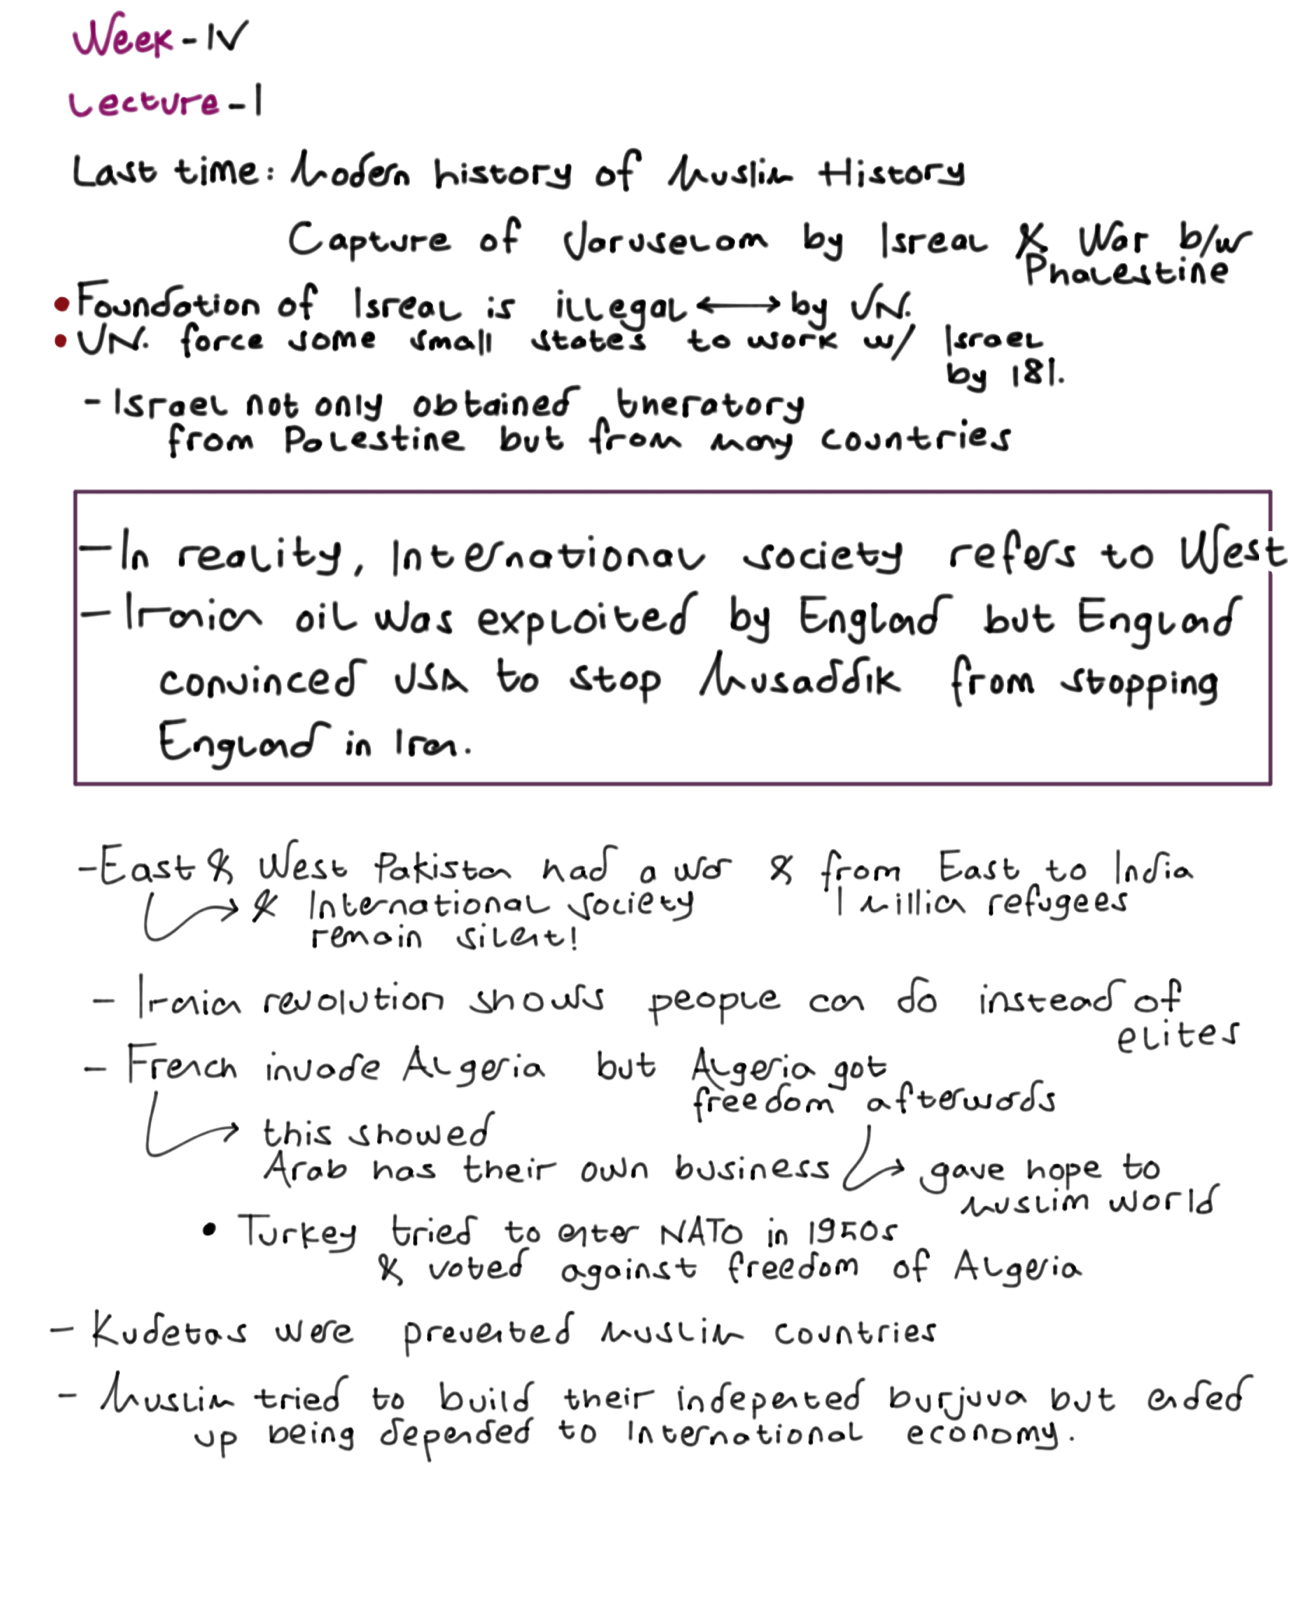 Week - IV
Lecture - 1
Last time: Modern history of Muslim History
Capture of Jaruselam by Isreal & War b/w
Phalestine
• Foundation of Isreal is illegal ⟷ by UN.
• UN. force some small states to work w/ Israel
by 181.
- Israel not only obtained theratory
from Palestine but from many countries
- In reality, International society refers to West
- Iranian oil was exploited by England but England
convinced USA to stop Musaddik from stopping
England in Iran.
- East & West Pakistan had a war & from East to India
→ & International society 1 million refugees
remain silent!
- Iranian revolution shows people can do instead of
elites
- French invade Algeria but Algeria got
freedom afterwards
→ this showed
Arab has their own business → gave hope to
muslim world
• Turkey tried to enter NATO in 1950s
& voted against freedom of Algeria
- Kudetas were prevented muslim countries
- Muslim tried to build their indepented burjuva but ended
up being depended to International economy.